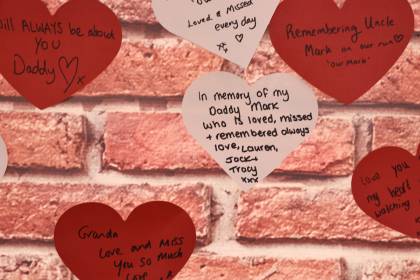 ill ALWAYS be about
YOU
Daddy ♡x
Loved & Missed
every day
Remembering Uncle
Mark on our run♡
'our Mark'
In memory of my
Daddy Mark
who is loved, missed
+ remembered always
love, Lauren,
Jock+
Tracy
xxx
you
my heart
watching
Granda
Love and Miss
you so much
Love